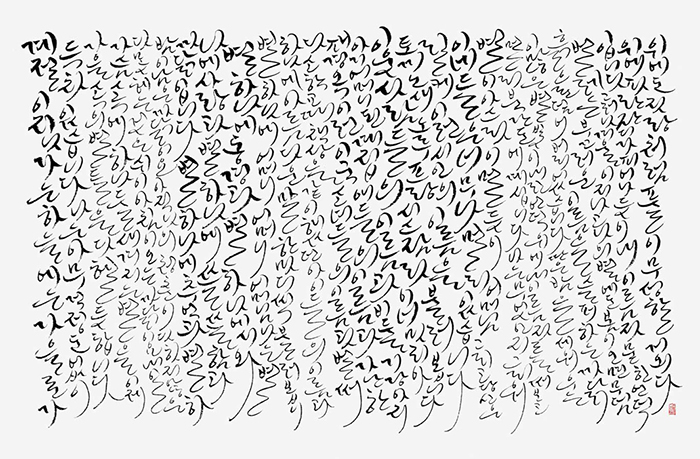 계절이 지나가는 하늘에는 가을로 가
득 차 있습니다 나는 아무 걱정도 없이
가을 속의 별들을 다 헤일 듯합니다
가슴 속에 하나 둘 새겨지는 별을 이제
다 못 헤는 것은 쉬이 아침이 오는 까닭이오 내일
밤이 남은 까닭이오 아직 나의 청춘이 다하지 않은
까닭입니다 별 하나에 추억과 별 하
나에 사랑과 별 하나에 쓸쓸함과
별 하나에 동경과 별 하나에 시와
별 하나에 어머니 어머니 어머님 나는 별
하나에 아름다운 말 한마디씩 불러 봅니
다 소학교 때 책상을 같이 했던 아이들의 이름과
패 경 옥 이런 이국 소녀들의 이름과 벌써
아기 어머니 된 계집애들의 이름과 가난한
이웃 사람들의 이름과 비둘기 강아지
토끼 노새 노루 프랑시스 잠 라이너 마리아
릴케 이런 시인의 이름을 불러 봅니다
이네들은 너무나 멀리 있습니다
별이 아스라이 멀듯이 어머님 그리고 당신은
멀리 북간도에 계십니다 나는 무엇인지 그리워
이 많은 별빛이 내린 언덕 위에 내 이름자를 써 보고
흙으로 덮어 버리었습니다 딴은 밤을 새워 우는
벌레는 부끄러운 이름을 슬퍼하는 까닭
입니다 그러나 겨울이 지나고 나의 별에도 봄이 오면 무덤
위에 파란 잔디가 피어나듯이 내 이름자 묻힌 언덕
위에도 자랑처럼 풀이 무성할 게외다